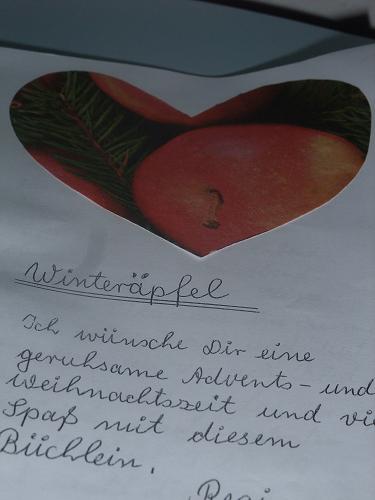 Winteräpfel
Ich wünsche Dir eine
geruhsame Advents- und
Weihnachtszeit und
Spaß mit diesem
Büchlein.